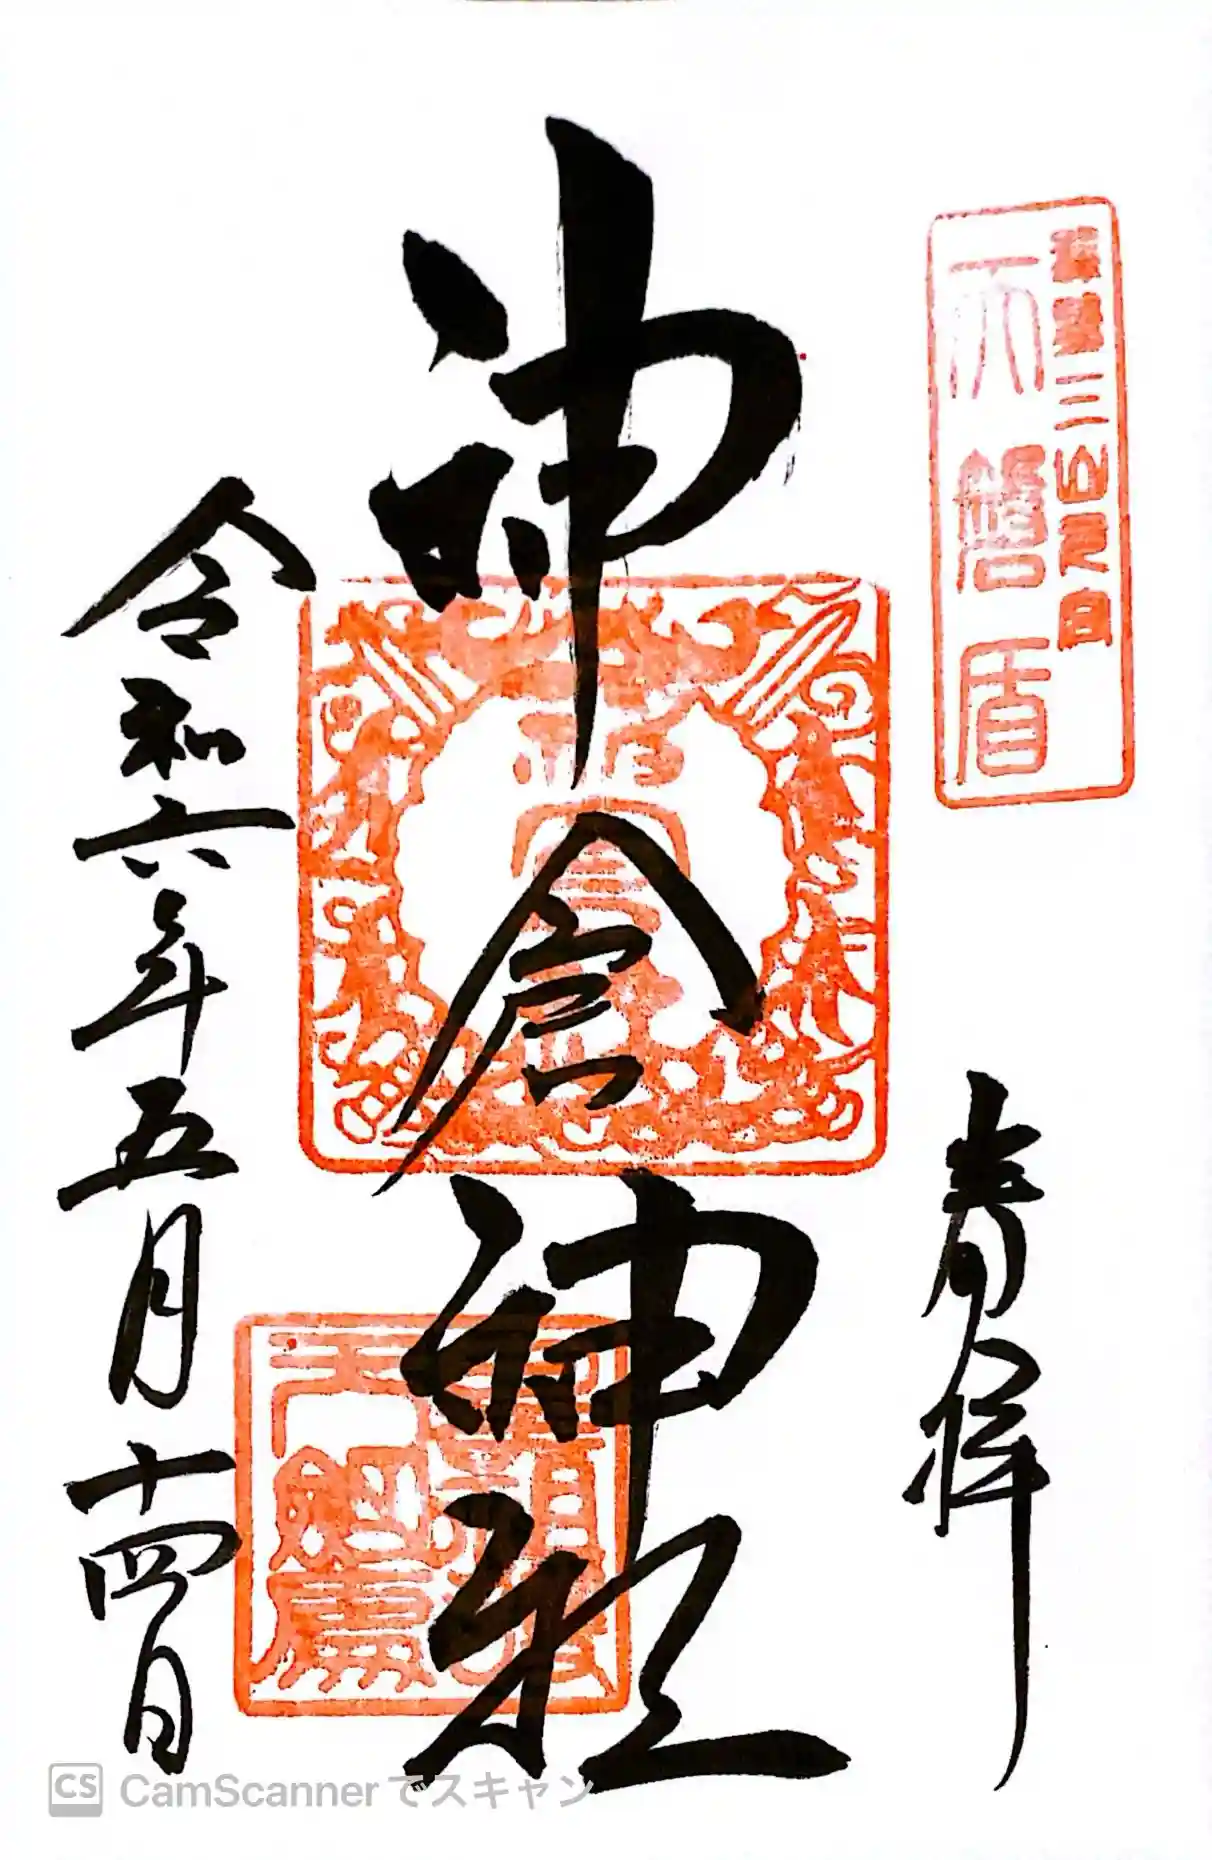 熊野三山元宮
天磐盾
奉拝
神倉神社
令和六年五月十四日
CS CamScannerでスキャン